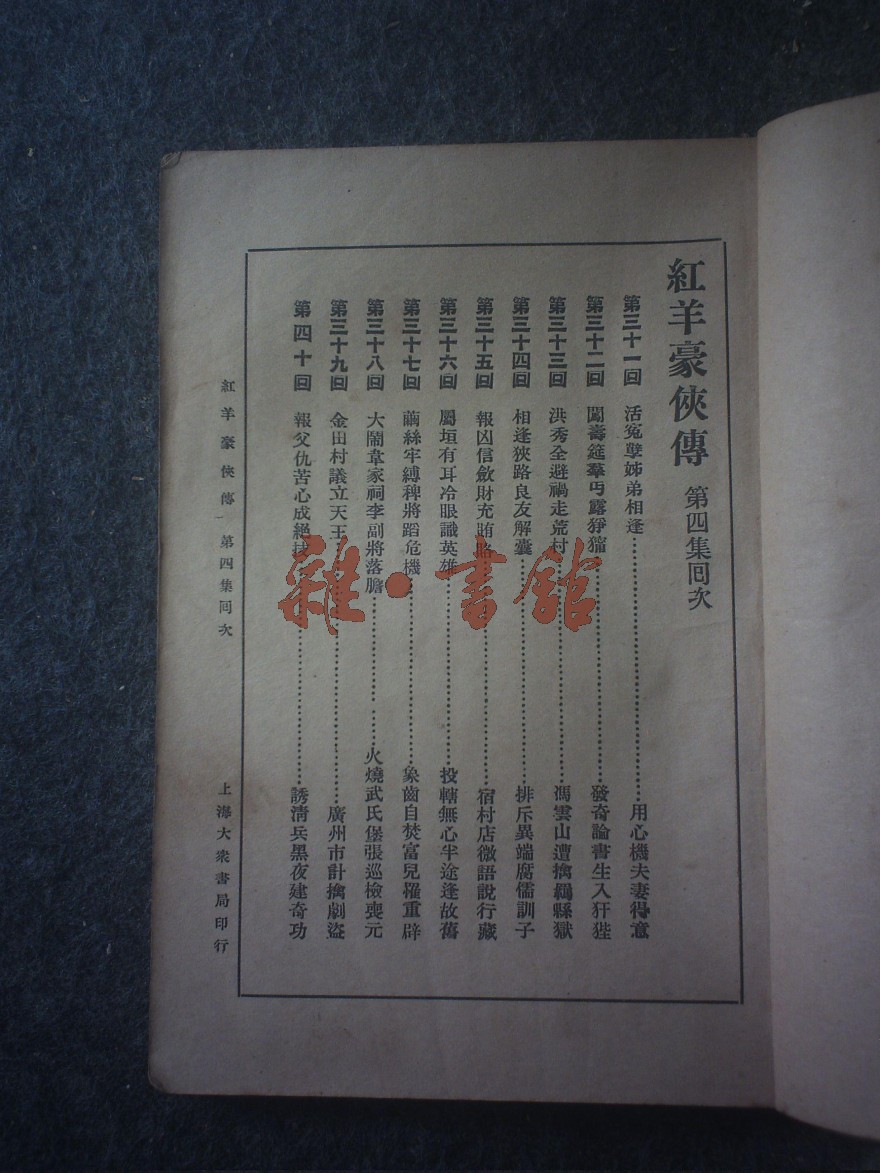 紅羊豪俠傳 第四集回次
第三十一回 活冤孽姊弟相逢……用心機夫妻得意
第三十二回 鬧壽筵羣丐露猙獰……發奇論書生入犴狴
第三十三回 洪秀全避禍走荒村……馮雲山遭擒羈縣獄
第三十四回 相逢狹路良友解囊……排斥異端腐儒訓子
第三十五回 報凶信斂財充賄賂……宿村店微語說行藏
第三十六回 屬垣有耳冷眼識英雄……投轄無心半途逢故舊
第三十七回 繭絲牢縛稗將蹈危機……象齒自焚富兒罹重辟
第三十八回 大鬧韋家祠李副將落膽……火燒武氏堡張巡檢喪元
第三十九回 金田村議立天王……廣州市計擒劇盜
第四十回 報父仇苦心成絕技……誘清兵黑夜建奇功
紅羊豪俠傳 第四集回次 上海大衆書局印行
雜·書館